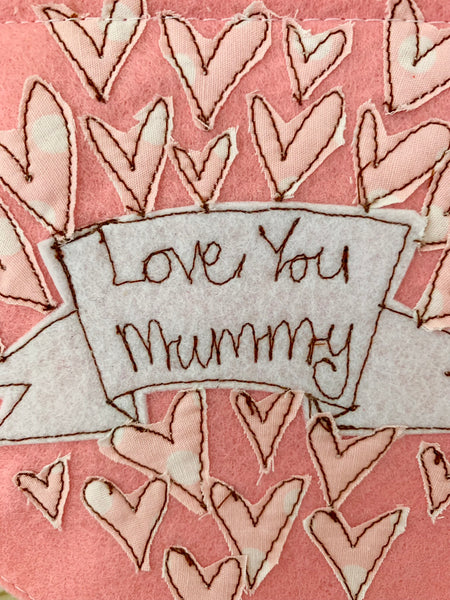 Love You
Mummy